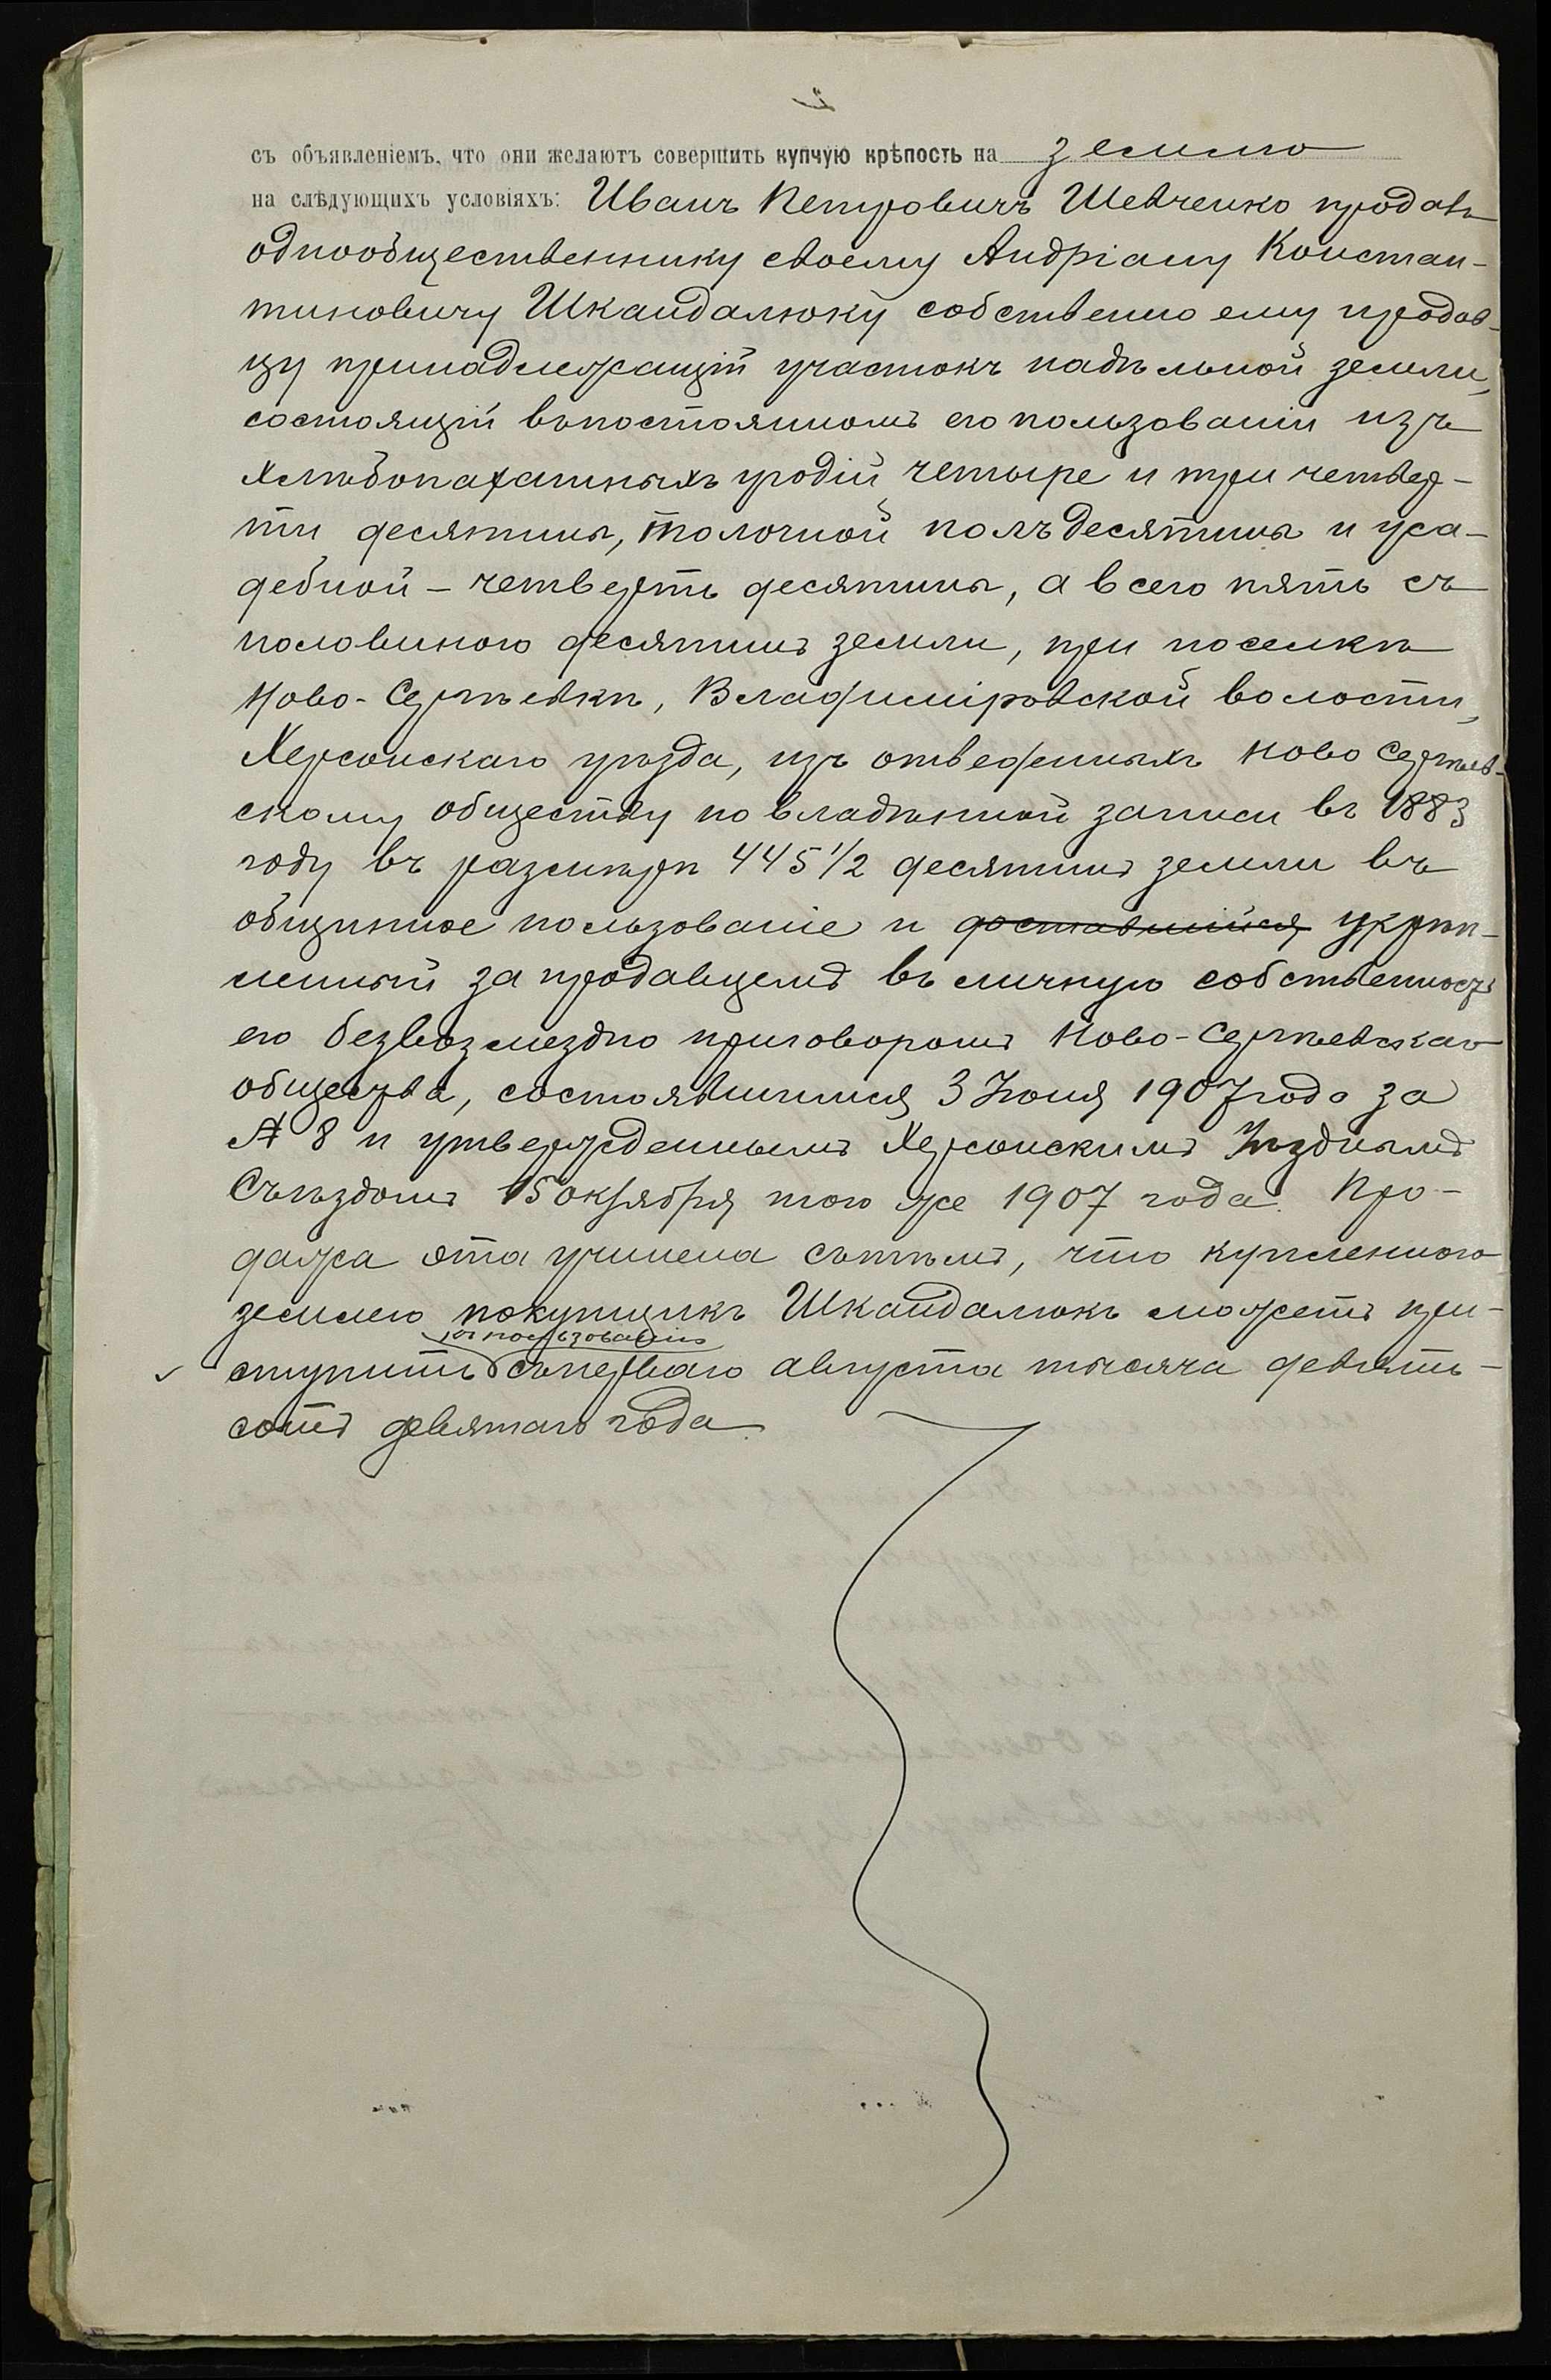 съ объявленіемъ, что они желаютъ совершить купчую крѣпость на землю
на слѣдующихъ условіяхъ: Иванъ Петровичъ Шевченко продалъ
однообщественнику своему Андріану Констан-
тиновичу Шкандалюку собственно ему продав-
цу принадлежащій участокъ надѣльной земли,
состоящій въ постоянномъ его пользованіи изъ
хлѣбопахатныхъ угодій четыре и три четвер-
ти десятины, толочной полъ десятины и уса-
дебной - четверть десятины, а всего пять съ
половиною десятинъ земли, при поселкѣ
Ново-Сергѣевкѣ, Владиміровской волости,
Херсонскаго уѣзда, изъ отведенныхъ Ново Сергѣев-
скому обществу по владѣнной записи въ 1883
году въ размѣрѣ 445 1/2 десятинъ земли въ
общинное пользованіе и доставшійся укрѣп-
ленный за продавцемъ въ личную собственность
его безвозмездно приговоромъ Ново-Сергѣевскаго
общества, состоявшимся 3 Іюня 1907 года за
№ 8 и утвержденнымъ Херсонскимъ Уѣзднымъ
Съѣздомъ 15 октября того же 1907 года. Про-
дажа эта учинена съ тѣмъ, что купленною
землею покупщикъ Шкандалюкъ можетъ при-
къ пользованію
ступить съ перваго августа тысяча девять-
сотъ девятаго года